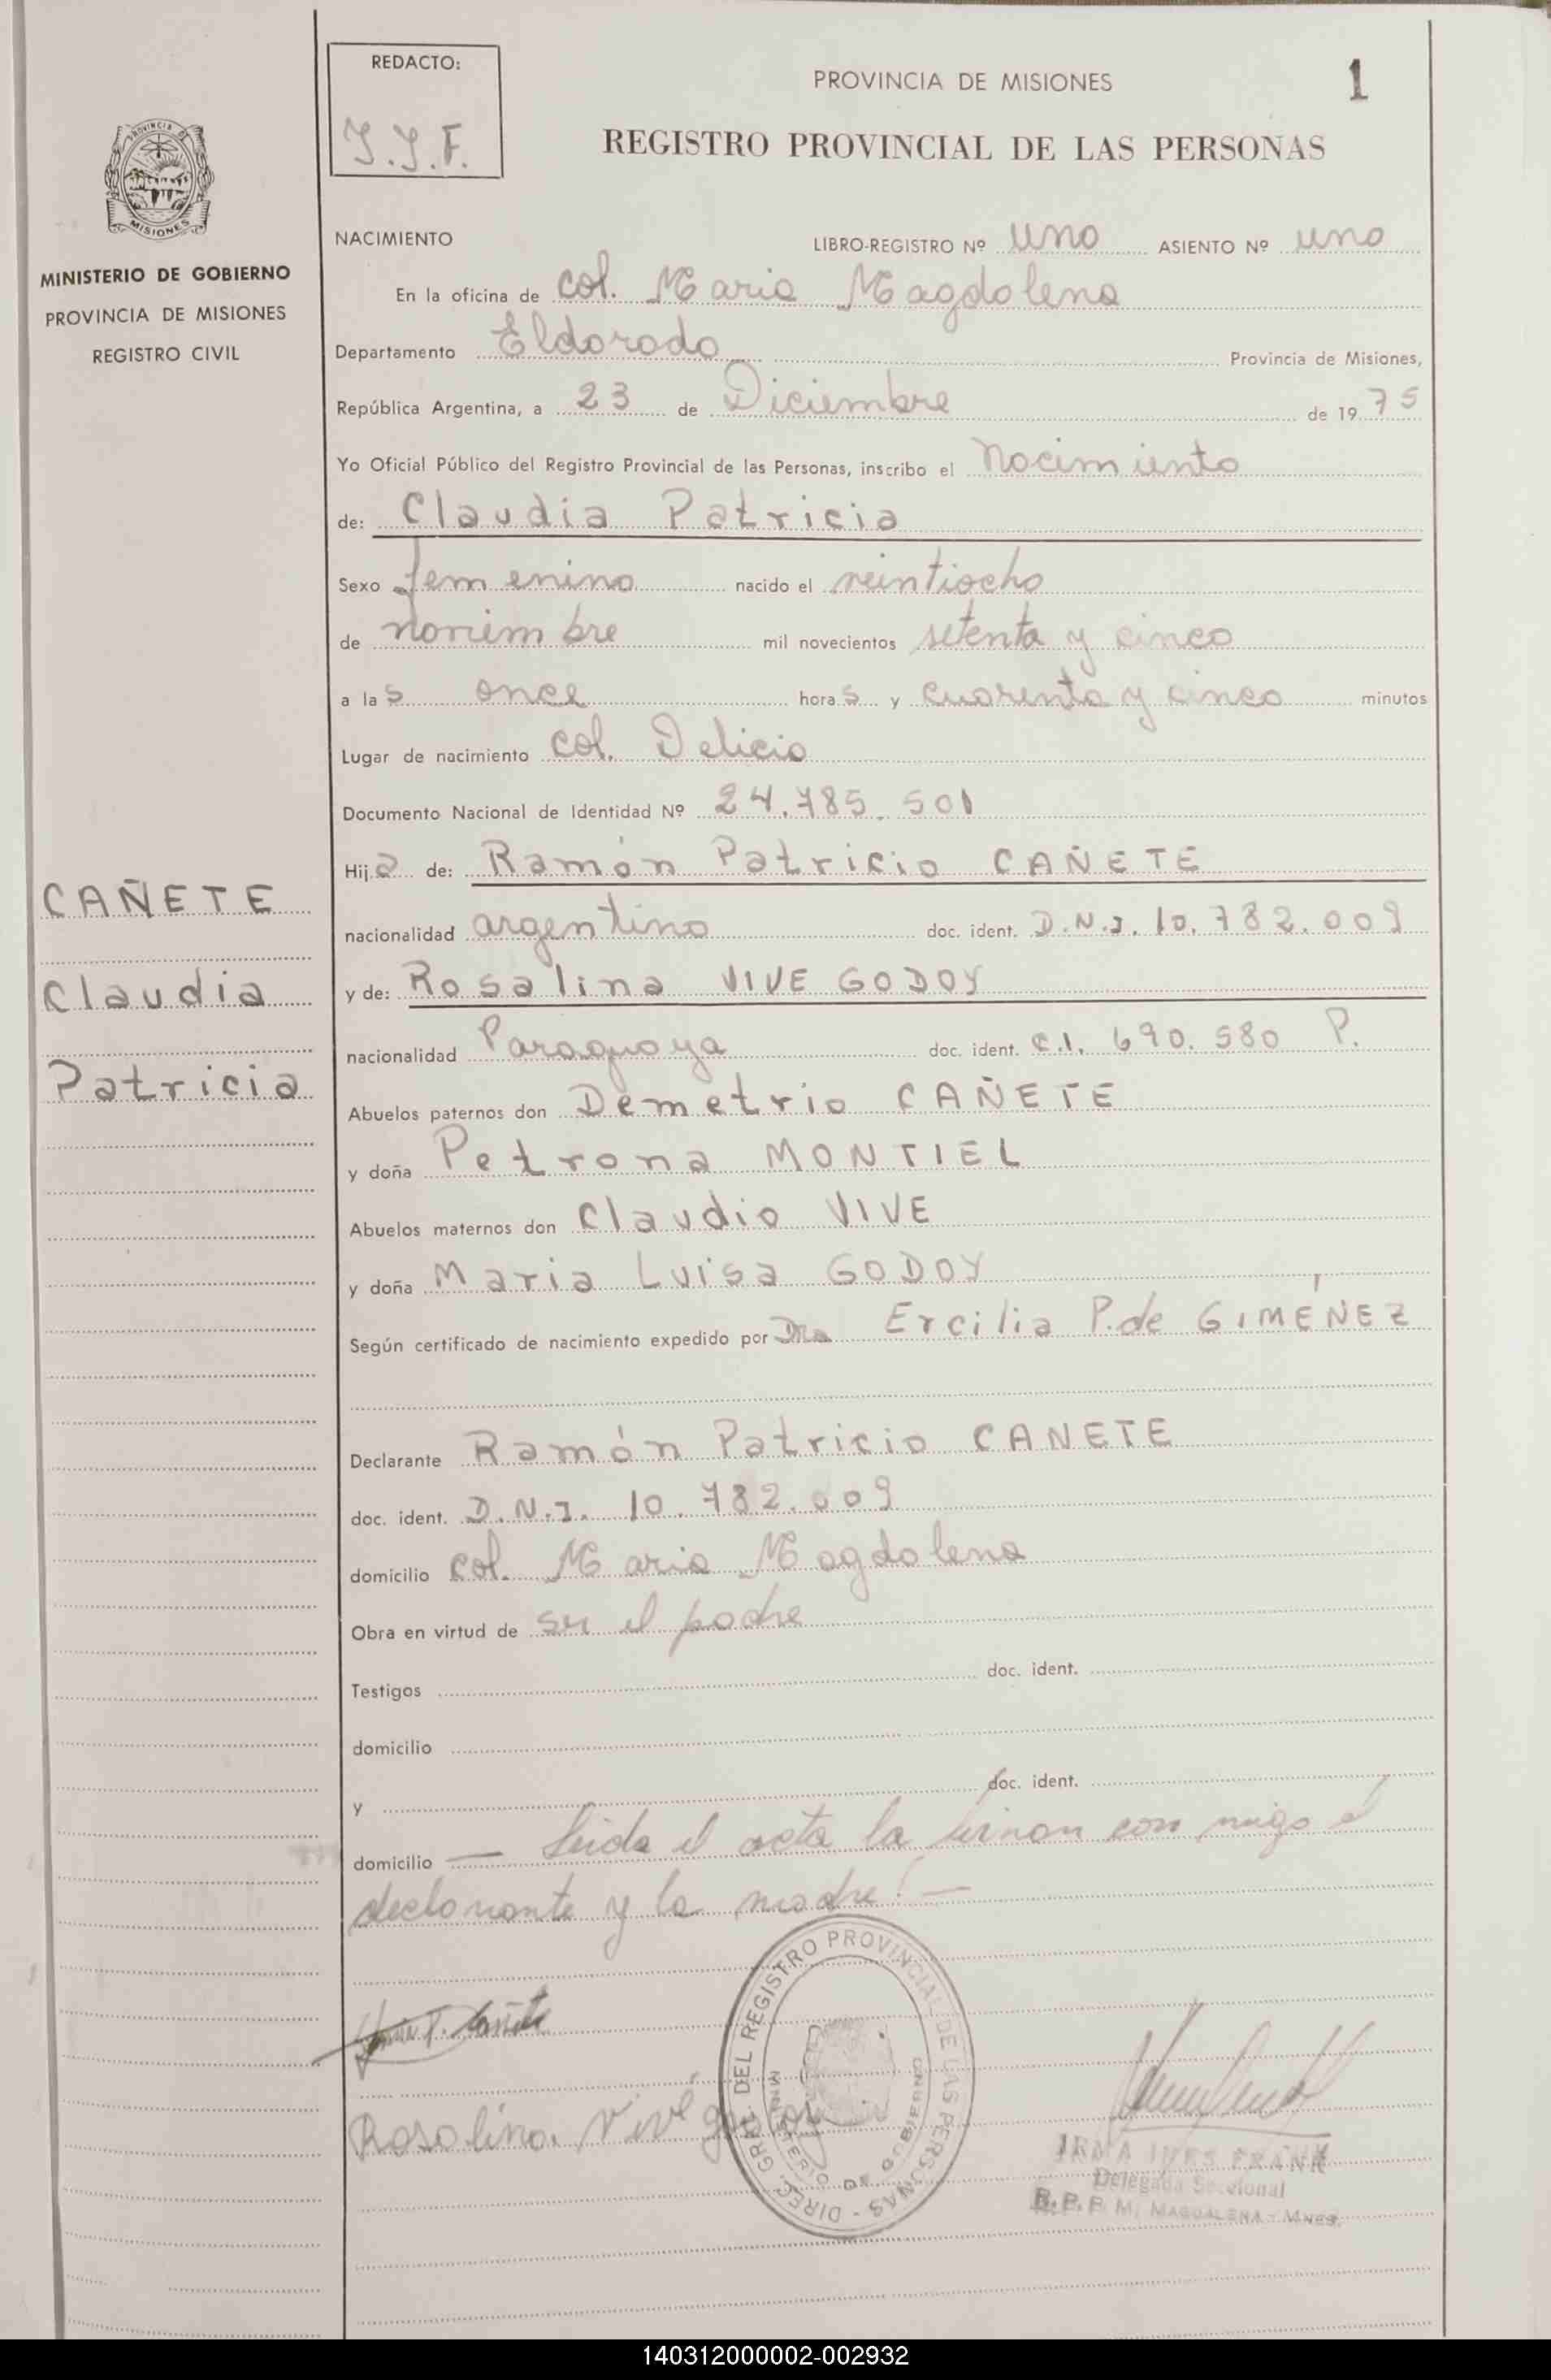 REDACTO:
I.I.F.
PROVINCIA DE MISIONES
1
REGISTRO PROVINCIAL DE LAS PERSONAS
PROVINCIA DE
MISIONES
MINISTERIO DE GOBIERNO
PROVINCIA DE MISIONES
REGISTRO CIVIL
CAÑETE
Claudia
Patricia
NACIMIENTO LIBRO-REGISTRO Nº uno ASIENTO Nº uno
En la oficina de col. Maria Magdalena
Departamento Eldorado Provincia de Misiones,
República Argentina, a 23 de Diciembre de 1975
Yo Oficial Público del Registro Provincial de las Personas, inscribo el nacimiento
de: Claudia Patricia
Sexo femenino nacido el veintiocho
de noviembre mil novecientos setenta y cinco
a las once horas y cuarenta y cinco minutos
Lugar de nacimiento col. Delicia
Documento Nacional de Identidad Nº 24.785.501
Hija de: Ramón Patricio CAÑETE
nacionalidad argentino doc. ident. D.N.I. 10.782.009
y de: Rosalina VIVE GODOY
nacionalidad Paraguaya doc. ident. C.I. 690.580 P.
Abuelos paternos don Demetrio CAÑETE
y doña Petrona MONTIEL
Abuelos maternos don Claudio VIVE
y doña Maria Luisa GODOY
Según certificado de nacimiento expedido por Dra Ercilia P. de GIMÉNEZ
Declarante Ramón Patricio CANETE
doc. ident. D.N.I. 10.782.009
domicilio col. Maria Magdalena
Obra en virtud de ser el padre
Testigos doc. ident.
domicilio
y doc. ident.
domicilio — Leida el acta la firman con migo el
declarante y la madre! —
Rosalina Vivé godoy
DIREC. GRAL. DEL REGISTRO PROVINCIAL DE LAS PERSONAS -
MINISTERIO DE GOBIERNO
IRMA INES FRANK
Delegada Seccional
R.P.P. M. MAGDALENA - Mnes.
140312000002-002932